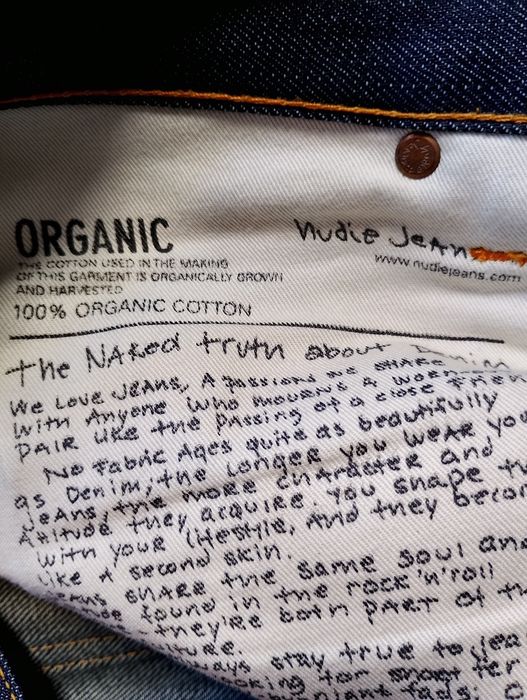 ORGANIC
THE COTTON USED IN THE MAKING
OF THIS GARMENT IS ORGANICALLY GROWN
AND HARVESTED
100% ORGANIC COTTON
Nudie Jean
www.nudiejeans.com
the NAKed truth about Denim
We Love JeANS, A passions we SHARe
with Anyone who mourns A worn
pair like the passing of a close frien
No Fabric Ages quite as beautifully
as Denim, the longer you weAR yo
Jeans the more character and
Attitude they acquire. You shape th
with your lifestyle, And they becom
like A second skin.
Jeans share the same soul and
found in the rock'n'roll
they're both part of th
ture.
ways stay true to jea
king for